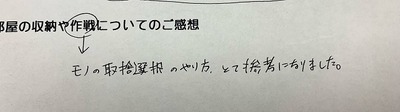 部屋の収納や作戦についてのご感想
モノの取捨選択のやり方、とて参考になりました。